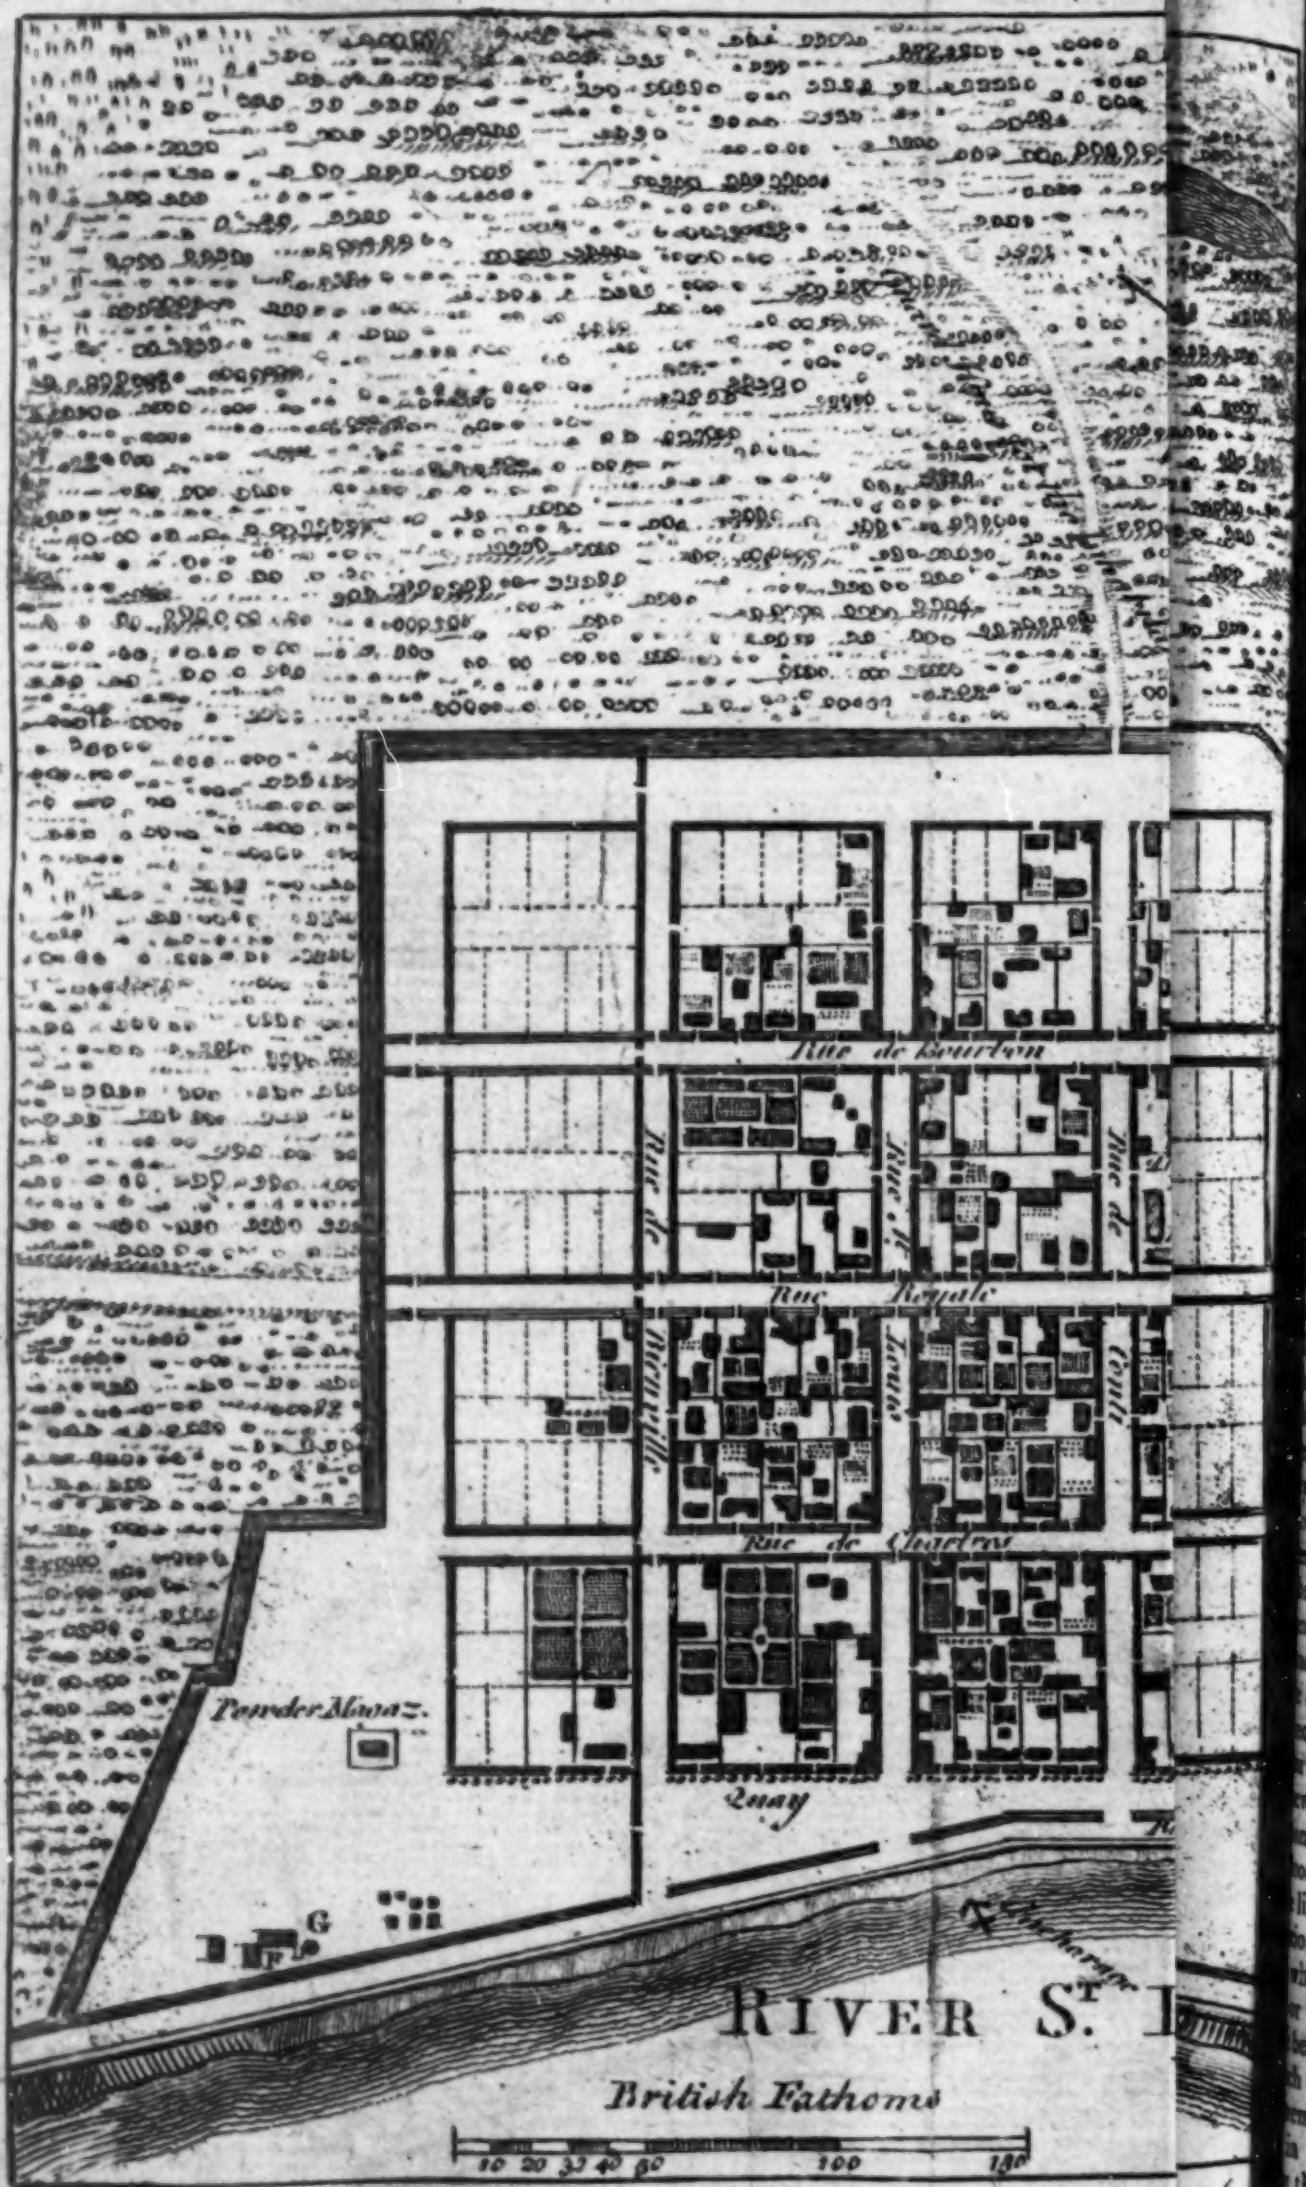 Rue de Bourbon
Rue de Bienville
Rue St. Louis
Rue de Conti
Rue Royale
Rue de Chartres
Powder Magaz.
Quay
G
F
Anchorage
RIVER ST. L
British Fathoms
10 20 30 40 50 100 150